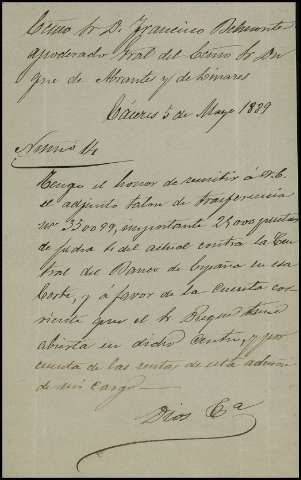 Excmo Sr D. Francisco Belmonte
apoderado Gral del Excmo Sr Du
que de Abrantes y de Linares
Cáceres 5 de Mayo 1889
Numº 14
Tengo el honor de remitir á V.E.
el adjunto talon de trasferencia
nº 35099, importante 25.000 pesetas
de fecha 4 del actual contra la Cen
tral del Banco de España en esa
Corte, y á favor de la cuenta cor
riente que el Sr Duque tiene
abierta en dicho Centro, y por
cuenta de las rentas de esta admon
de mi cargo.
Dios &a